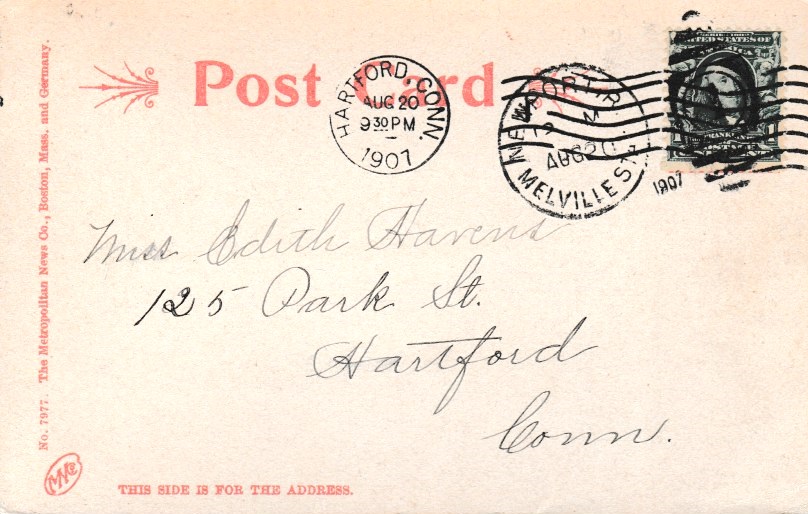 Post Card
HARTFORD, CONN.
AUG 20
9 30 PM
1907
NEWPORT R.
12 M
AUG 20
MELVILLE STA.
1907
SERIES 1902
UNITED STATES OF
AMERICA
FRANKLIN
Miss Edith Havens
125 Park St.
Hartford
Conn.
No. 7977. The Metropolitan News Co., Boston, Mass, and Germany.
THIS SIDE IS FOR THE ADDRESS.